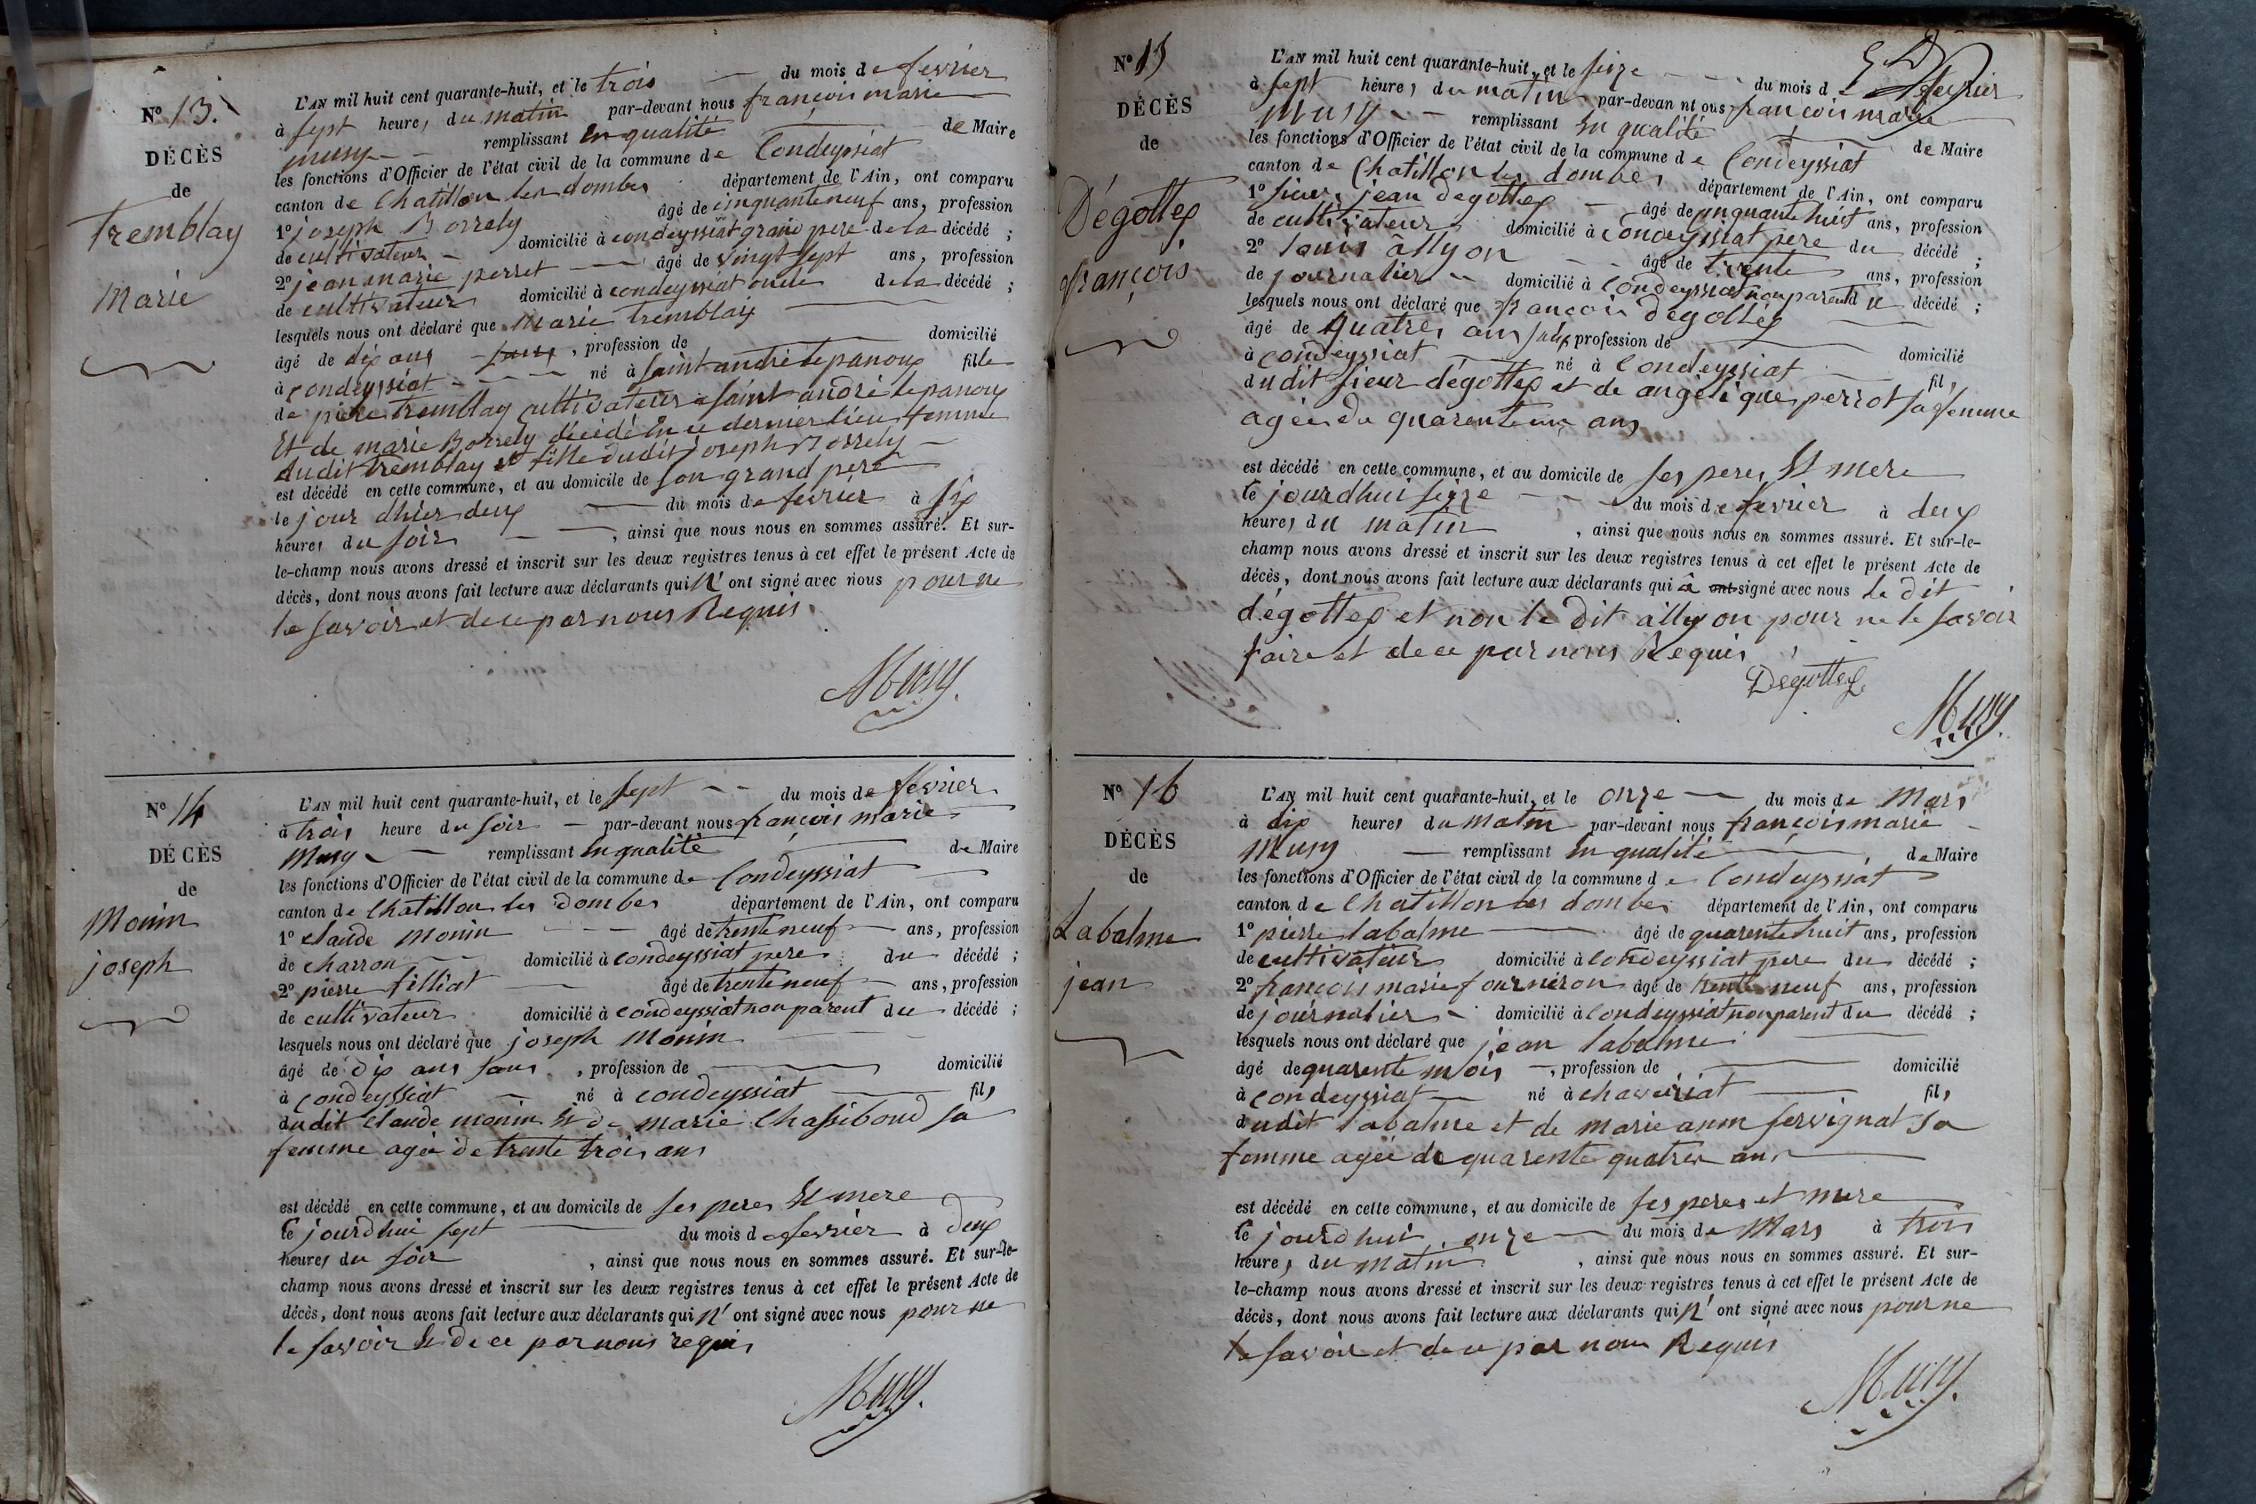 N° 13.
DÉCÈS
de
Tremblay
Marie
L'AN mil huit cent quarante-huit, et le trois du mois de fevrier
à sept heures du matin par-devant nous françois marie
musy remplissant En qualité de Maire
les fonctions d'Officier de l'état civil de la commune de Condeyssiat
canton de Chatillon les dombes département de l'Ain, ont comparu
1° joseph Borrely âgé de cinquante neuf ans, profession
de cultivateur domicilié à condeyssiat grand pere de la décédé ;
2° jean marie perret âgé de vingt sept ans, profession
de cultivateur domicilié à condeyssiat oncle de la décédé ;
lesquels nous ont déclaré que marie tremblay
âgé de dix ans sans, profession de domicilié
à condeyssiat né à saint andré lepanoux fille
de pierre tremblay cultivateur a saint andré lepanoux
Et de marie Borrely décédé En ce dernier lieu femme
dudit tremblay et fille dudit joseph Borrely
est décédé en cette commune, et au domicile de son grand pere
le jour dhier deux du mois de fevrier à six
heures du soir , ainsi que nous nous en sommes assuré. Et sur-
le-champ nous avons dressé et inscrit sur les deux registres tenus à cet effet le présent Acte de
décès, dont nous avons fait lecture aux déclarants qui n' ont signé avec nous pour ne
le savoir et de ce par nous Requis
Musy.
N° 14
DÉCÈS
de
Monin
joseph
L'AN mil huit cent quarante-huit, et le sept du mois de fevrier
à trois heure du soir par-devant nous françois marie
Musy remplissant En qualité de Maire
les fonctions d'Officier de l'état civil de la commune de Condeyssiat
canton de Chatillon les dombes département de l'Ain, ont comparu
1° claude monin âgé de trente neuf ans, profession
de charron domicilié à condeyssiat pere du décédé ;
2° pierre filliat âgé de trente neuf ans, profession
de cultivateur domicilié à condeyssiat non parent du décédé ;
lesquels nous ont déclaré que joseph Monin
âgé de dix ans sans , profession de domicilié
à condeyssiat né à condeyssiat fils
dudit claude monin Et de marie Chassiboud sa
femme agée de trente trois ans
est décédé en cette commune, et au domicile de ses peres Et mere
le jourdhui sept du mois de fevrier à deux
heures du soir , ainsi que nous nous en sommes assuré. Et sur-le-
champ nous avons dressé et inscrit sur les deux registres tenus à cet effet le présent Acte de
décès, dont nous avons fait lecture aux déclarants qui n' ont signé avec nous pour ne
le savoir Et de ce par nous requis
Musy.
N° 15
DÉCÈS
de
Dégottex
françois
L'AN mil huit cent quarante-huit, et le seize du mois de fevrier
à sept heures du matin par-devan nt ous françois marie
Musy remplissant En qualité de Maire
les fonctions d'Officier de l'état civil de la commune de Condeyssiat
canton de Chatillon les dombes département de l'Ain, ont comparu
1° sieur jean degottex âgé de cinquante huit ans, profession
de cultivateur domicilié à Condeyssiat pere du décédé ;
2° louis allyon âgé de trente ans, profession
de journalier domicilié à Condeyssiat non parent du décédé ;
lesquels nous ont déclaré que françois degottex
âgé de quatres ans sans profession de domicilié
à condeyssiat né à Condeyssiat fils
dudit sieur dégottex et de angélique perrot sa femme
agée de quarente un ans
est décédé en cette commune, et au domicile de ses peres Et mere
le jourdhui seize du mois de fevrier à deux
heures du matin , ainsi que nous nous en sommes assuré. Et sur-le-
champ nous avons dressé et inscrit sur les deux registres tenus à cet effet le présent Acte de
décès, dont nous avons fait lecture aux déclarants qui â ont signé avec nous le dit
dégottex et non le dit allyon pour ne le savoir
faire et de ce par nous Requis
Dégottex
Musy.
N° 16
DÉCÈS
de
Labalme
jean
L'AN mil huit cent quarante-huit, et le onze du mois de Mars
à dix heures du matin par-devant nous françois marie
Musy remplissant En qualité de Maire
les fonctions d'Officier de l'état civil de la commune de Condeyssiat
canton de Chatillon les dombes département de l'Ain, ont comparu
1° pierre labalme âgé de quarente huit ans, profession
de cultivateur domicilié à Condeyssiat pere du décédé ;
2° françois marie fournéron âgé de trente neuf ans, profession
de journalier domicilié à Condeyssiat non parent du décédé ;
lesquels nous ont déclaré que jean labalme
âgé de quarente mois , profession de domicilié
à condeyssiat né à chaveiriat fils
dudit labalme et de marie anne servignat sa
femme agée de quarente quatres ans
est décédé en cette commune, et au domicile de ses peres et mere
le jourdhui onze du mois de Mars à trois
heures du matin , ainsi que nous nous en sommes assuré. Et sur-
le-champ nous avons dressé et inscrit sur les deux registres tenus à cet effet le présent Acte de
décès, dont nous avons fait lecture aux déclarants qui n' ont signé avec nous pour ne
le savoir et de ce par nous Requis
Musy.